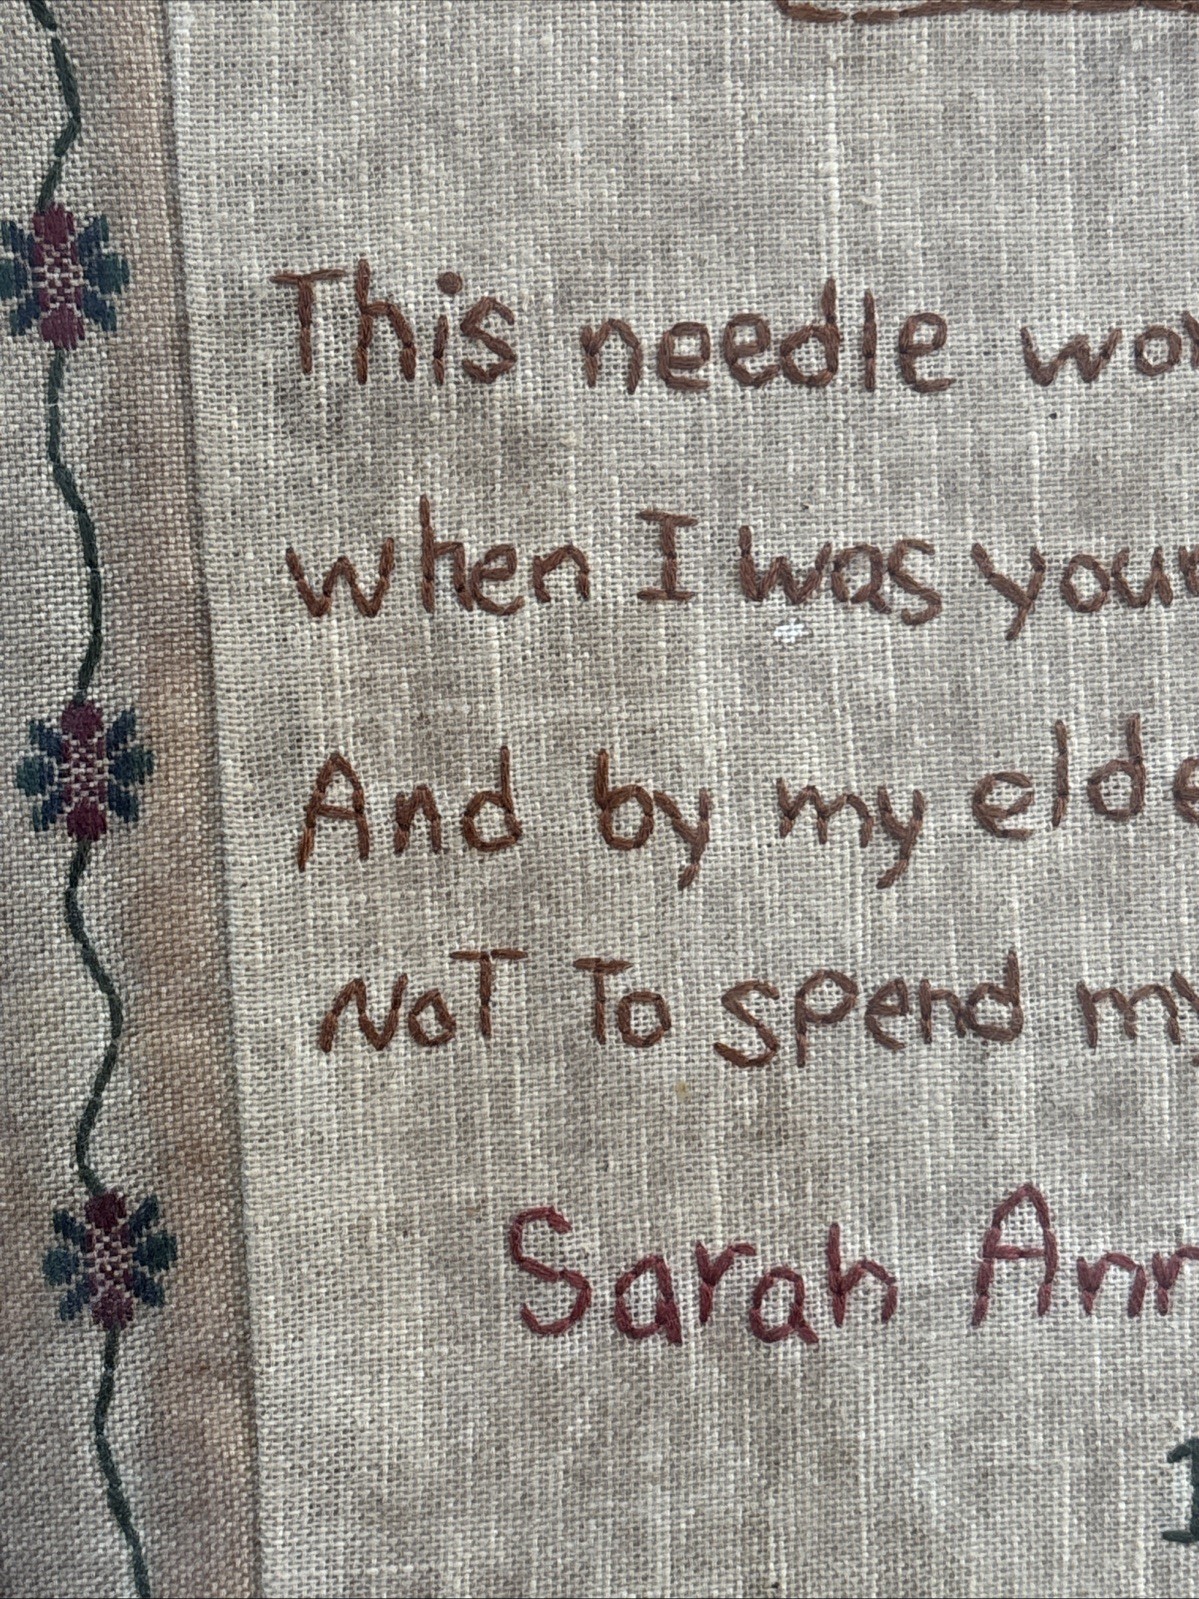 This needle wor
when I was youn
And by my elde
NoT To spend my
Sarah Ann
1